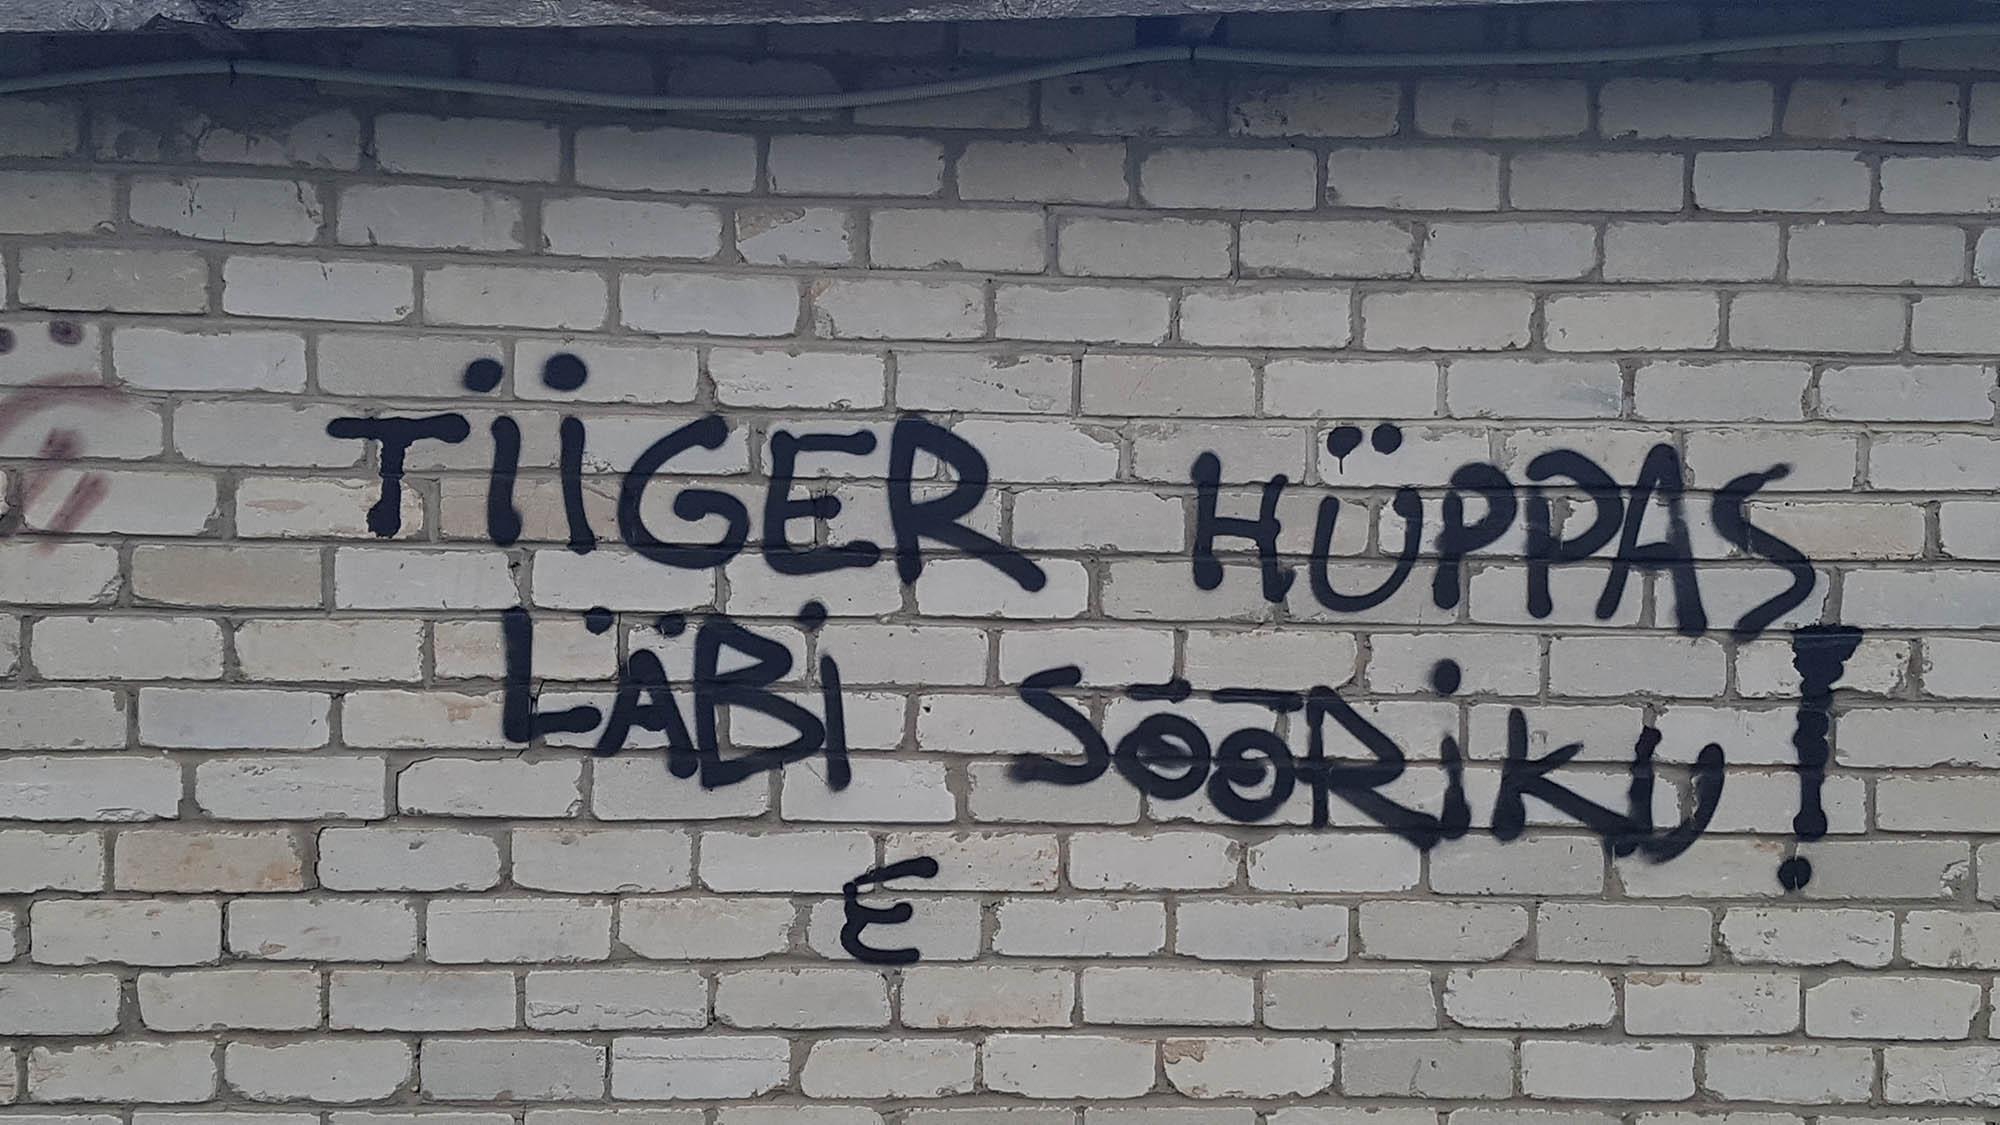 TIIGER HÜPPAS
LÄBI SÕÕRIKU!
E